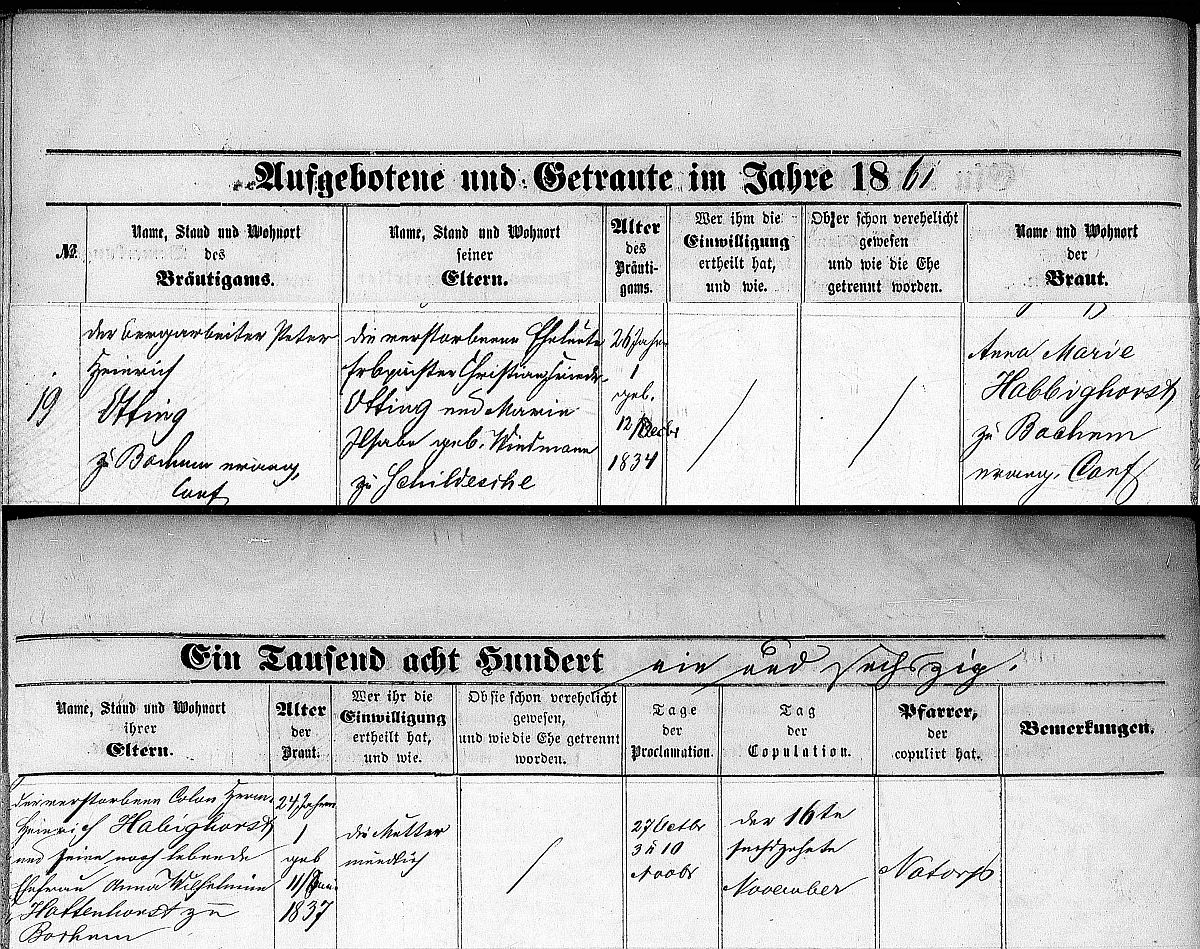 Aufgebotene und Getraute im Jahre 1861
№
Name, Stand und Wohnort
des
Bräutigams.
Name, Stand und Wohnort
seiner
Eltern.
Alter
des
Bräuti-
gams.
Wer ihm die
Einwilligung
ertheilt hat,
und wie.
Ob er schon verehelicht
gewesen
und wie die Ehe
getrennt worden.
Name und Wohnort
der
Braut.
19
der Bergarbeiter Peter
Heinrich
Otting
zu Bochum evang.
Conf
die verstorbenen Eheleute
Erbpächter Christian
Otting und Marie
Ilsabe geb. Wiedmann
zu Schildesche
26 Jahre
geb.
12/Decbr
1834
Anna Marie
Habbighorst
zu Bochum
evang. Conf
Ein Tausend acht Hundert ein und sechszig.
Name, Stand und Wohnort
ihrer
Eltern.
Alter
der
Braut.
Wer ihr die
Einwilligung
ertheilt hat,
und wie.
Ob sie schon verehelicht
gewesen,
und wie die Ehe getrennt
worden.
Tage
der
Proclamation.
Tag
der
Copulation.
Pfarrer,
der
copulirt hat.
Bemerkungen.
Der verstorbene Colon Herm.
Heinrich Habighorst
und seine noch lebende
Ehefrau Anna Wilhelmine
Hattenhorst zu
Bochum
24 Jahren
geb
11/Jan.
1837
die Mutter
mündlich
27 Octbr
3 u 10
Novbr
der 16te
sechszehnte
November
Natorp